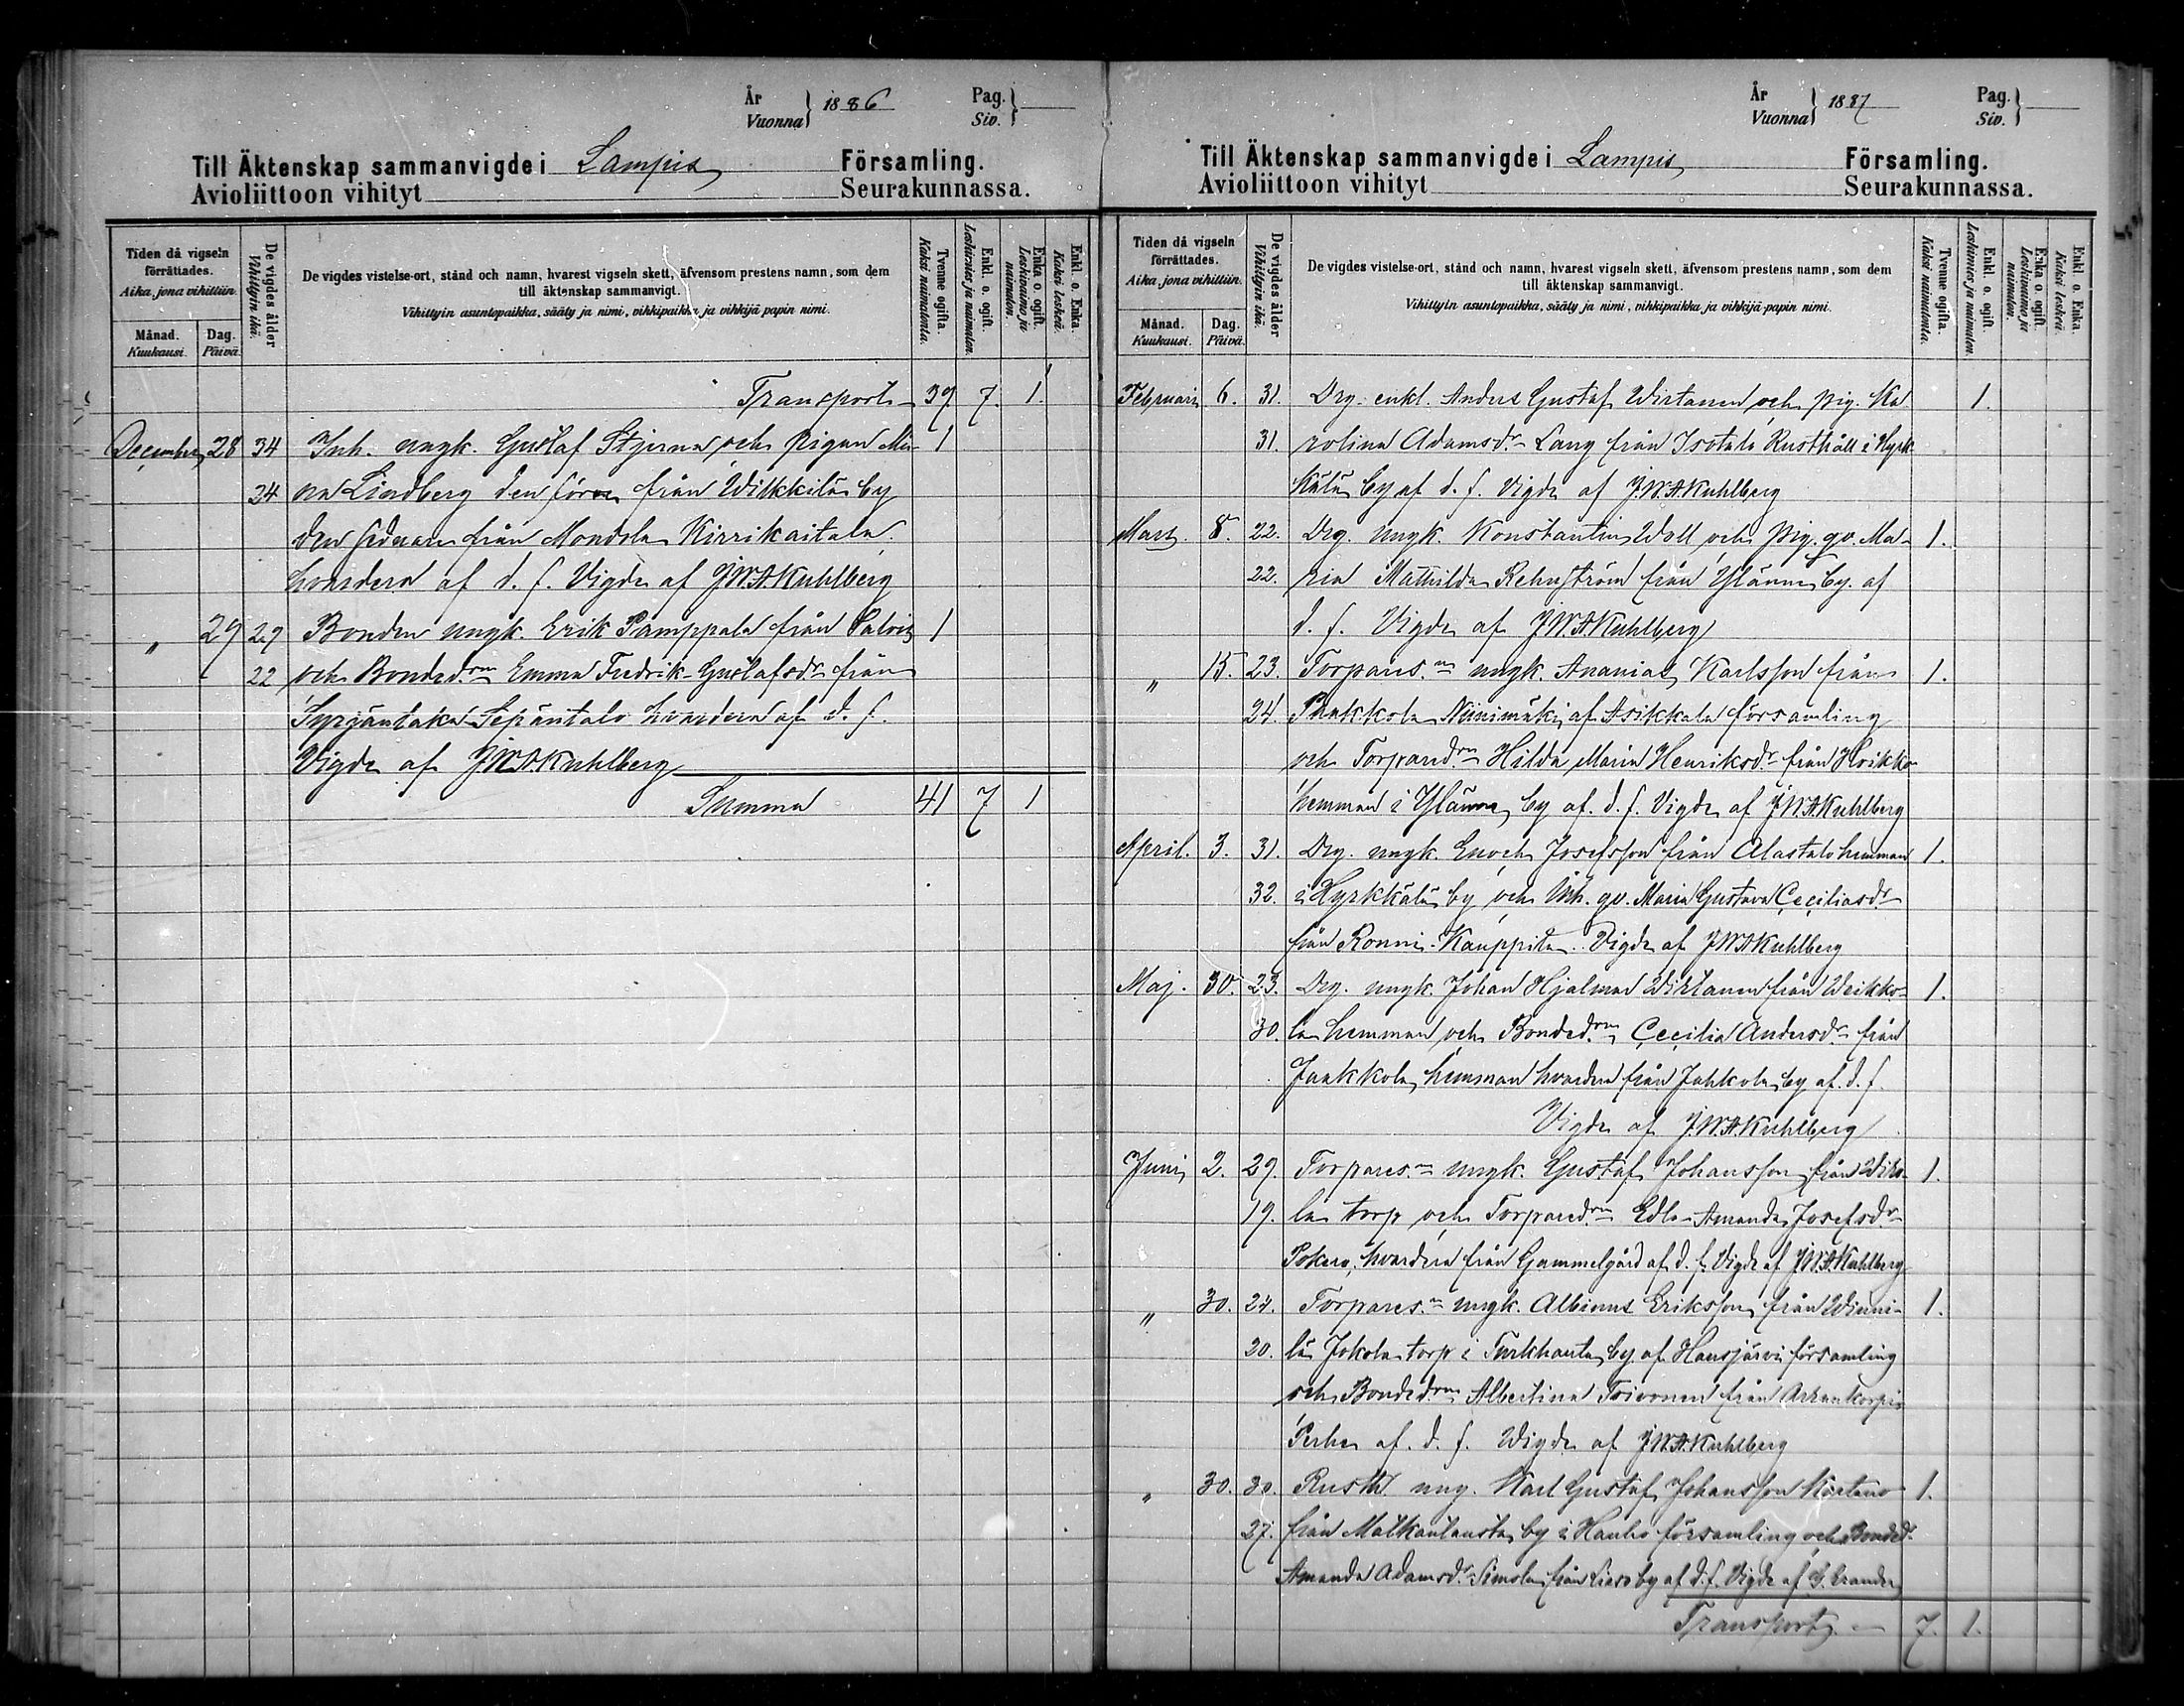 År
Vuonna } 1886
Pag.
Siv. }
Till Äktenskap sammanvigde i Lampis Församling.
Avioliittoon vihityt Seurakunnassa.
Tiden då vigseln förrättades.
Aika, jona vihittiin.
Månad.
Kuukausi.
Dag.
Päivä.
De vigdes ålder
Vihittyin ikä.
De vigdes vistelse-ort, stånd och namn, hvarest vigseln skett, äfvensom prestens namn, som dem
till äktenskap sammanvigt.
Vihittyin asuntopaikka, sääty ja nimi, vihkipaikka ja vihkijä papin nimi.
Tvenne ogifta.
Kaksi naimatonta.
Enkl. o. ogift.
Leskimies ja naimaton.
Enka o. ogift.
Leskivaimo ja naimaton.
Enkl. o. Enka.
Kaksi leskeä.
Transport 39 7. 1.
December 28 34 Inh. ungk. Gustaf Stjerna och pigan Mi- 1
24 na Lindberg den förra från Wilkkilä by
den sednare från Mondola Kirrikaitala
hvardera af d. f. Vigde af J.W.A. Kuhlberg
" 29 29 Bonden ungk. Erik Pamppala från Salois 1
22 och Bondedrn Emma Fredrik. Gustafsdr från
Syrjäntaka Sepäntalo hvardera af d. f.
Vigde af J.W.A. Kuhlberg
Summa 41 7 1
År
Vuonna } 1887
Pag.
Siv. }
Till Äktenskap sammanvigde i Lampis Församling.
Avioliittoon vihityt Seurakunnassa.
Tiden då vigseln förrättades.
Aika, jona vihittiin.
Månad.
Kuukausi.
Dag.
Päivä.
De vigdes ålder
Vihittyin ikä.
De vigdes vistelse-ort, stånd och namn, hvarest vigseln skett, äfvensom prestens namn, som dem
till äktenskap sammanvigt.
Vihittyin asuntopaikka, sääty ja nimi, vihkipaikka ja vihkijä papin nimi.
Tvenne ogifta.
Kaksi naimatonta.
Enkl. o. ogift.
Leskimies ja naimaton.
Enka o. ogift.
Leskivaimo ja naimaton.
Enkl. o. Enka.
Kaksi leskeä.
Februari 6. 31. Drg. enkl. Anders Gustaf Wirtanen och pig. Ka- 1.
31. rolina Adamsdr Lang från Isotalo Rusthåll i Hyrk-
kälä by af d. f. Vigde af J.W.A. Kuhlberg
Mars. 8. 22. Drg. ungk. Konstantin Wall och pig. qv. Ma- 1.
22. ria Mathilda Rehnström från Ylänne by. af
d. f. Vigde af J.W.A. Kuhlberg
" 15. 23. Torpares.n ungk. Ananias Karlsson från 1.
24. Paakkola Niinimäki af Asikkala församling
och Torparedrn Hilda Maria Henriksdr från Hoikko
hemman i Ylänne by af. d. f. Vigde af J.W.A. Kuhlberg
April. 3. 31. Drg. ungk. Enoch Josefsson från Alastalo hemman 1.
32. i Hyrkkälä by och Inh. qv. Maria Gustava Ceciliasdr
från Ronni-Kauppila. Vigde af J.W.A. Kuhlberg
Maj. 30. 23. Drg. ungk. Johan Hjalmar Wirtanen från Weikko- 1.
30. la hemman och Bondedrn Cecilia Andersdr från
Jaakkola hemman hvardera från Jahkola by af. d. f.
Vigde af J.W.A. Kuhlberg
Juni 2. 29. Torpares.n ungk. Gustaf Johansson från Wiko- 1.
19. la torp och Torparedrn Edla Amanda Josefsdr
Pokero, hvardera från Gammelgård af d. f. Vigde af J.W.A. Kuhlberg
" 30. 24. Torpares.n ungk. Albinus Eriksson från Winni- 1.
20. lä Jokola torp i Turkhauta by af Hausjärvi församling
och Bondedrn Albertina Toivonen från Arrankorpi
Perhe af. d. f. Wigde af J.W.A. Kuhlberg
" 30. 30. Rusth. ung. Karl Gustaf Johansson Kartano 1.
27. från Matkantausta by i Hauho församling och Bonded.
Amanda Adamsdr Simola från Lieso by af d. f. Vigde af G. Erander
Transport 7. 1.